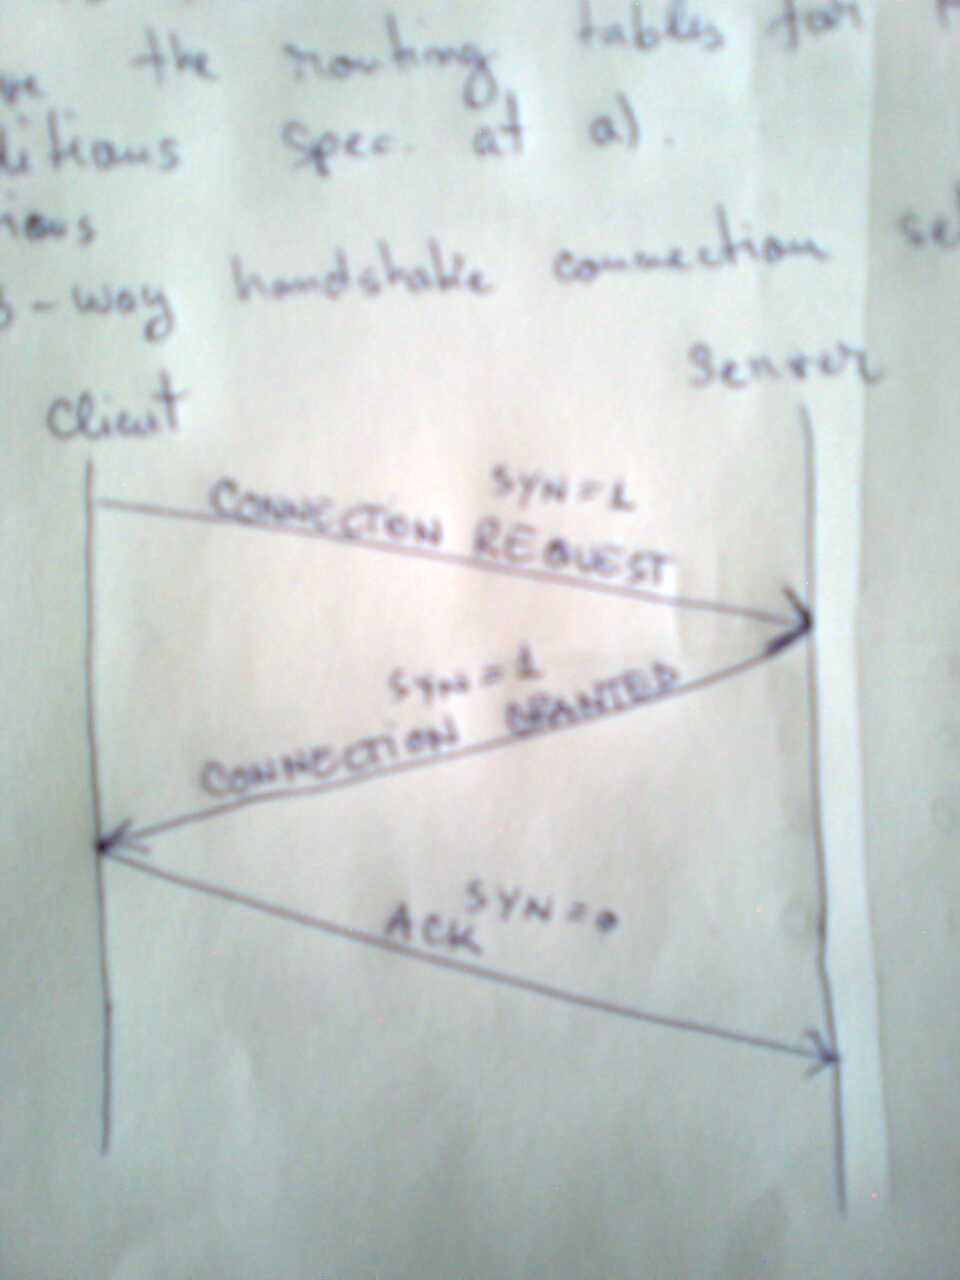 the routing tables for
spec. at a).
3-way handshake connection
Client
Server
SYN=1
CONNECTON REQUEST
SYN=1
CONNECTION GRANTED
SYN=0
ACK